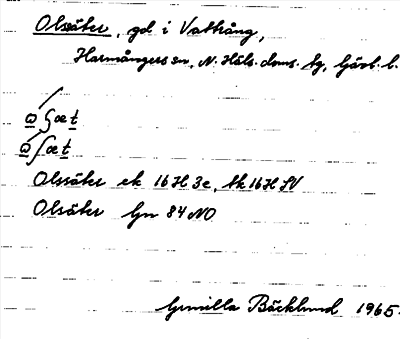 Olsäter, gd i Vattrång,
Harmångers sn, N. Häls. doms. tg, Gävl. l.
ω ʃ æ t
ω ʃ æ t
Olssäter ek 16H 3e, tk 16H SV
Olsäter Gn 84 NO
Gunilla Bäcklund 1965.